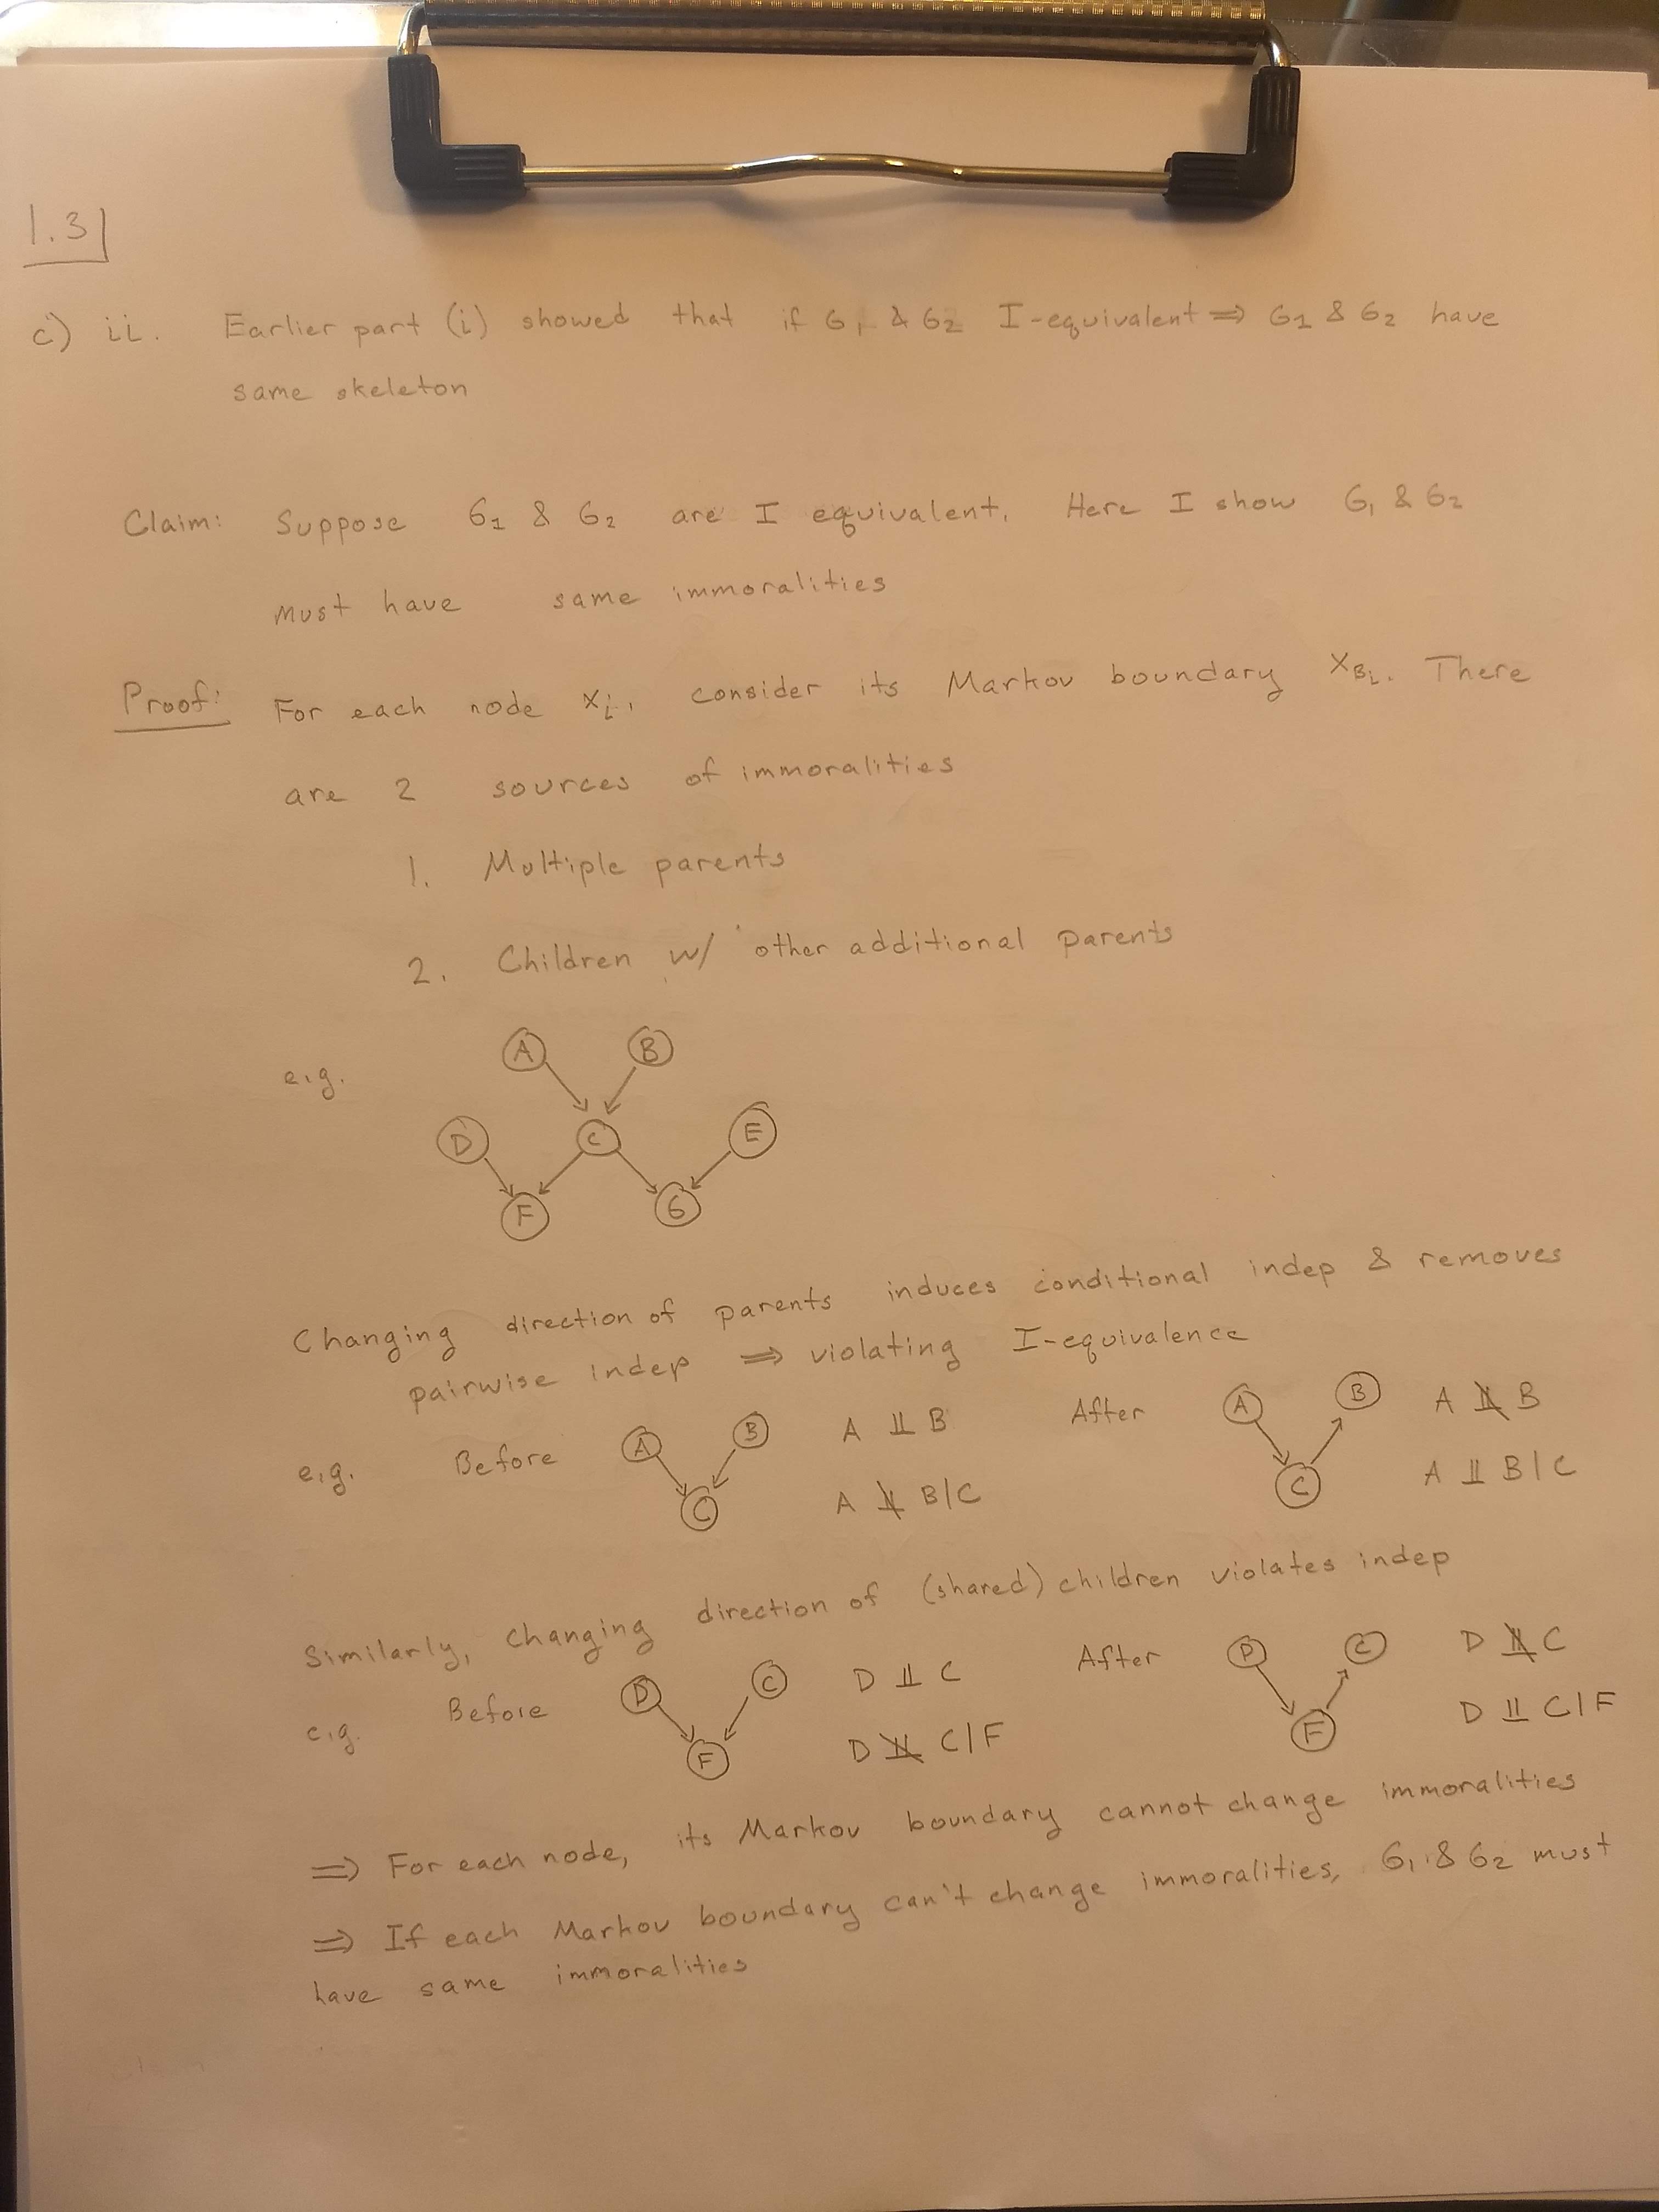 1.3
c) ii. Earlier part (i) showed that if G1 & G2 I-equivalent ⇒ G1 & G2 have
same skeleton
Claim: Suppose G1 & G2 are I equivalent. Here I show G1 & G2
must have same immoralities
Proof: For each node Xi, consider its Markov boundary XBi. There
are 2 sources of immoralities
1. Multiple parents
2. Children w/ other additional parents
e.g.
A B
D C E
F G
Changing direction of parents induces conditional indep & removes
pairwise indep ⇒ violating I-equivalence
e.g. Before A B C A ⫫ B After A B C A ⫫̸ B
A ⫫̸ B|C A ⫫ B|C
Similarly, changing direction of (shared) children violates indep
e.g. Before D C F D ⫫ C After D C F D ⫫̸ C
D ⫫̸ C|F D ⫫ C|F
⇒ For each node, its Markov boundary cannot change immoralities
⇒ If each Markov boundary can't change immoralities, G1 & G2 must
have same immoralities